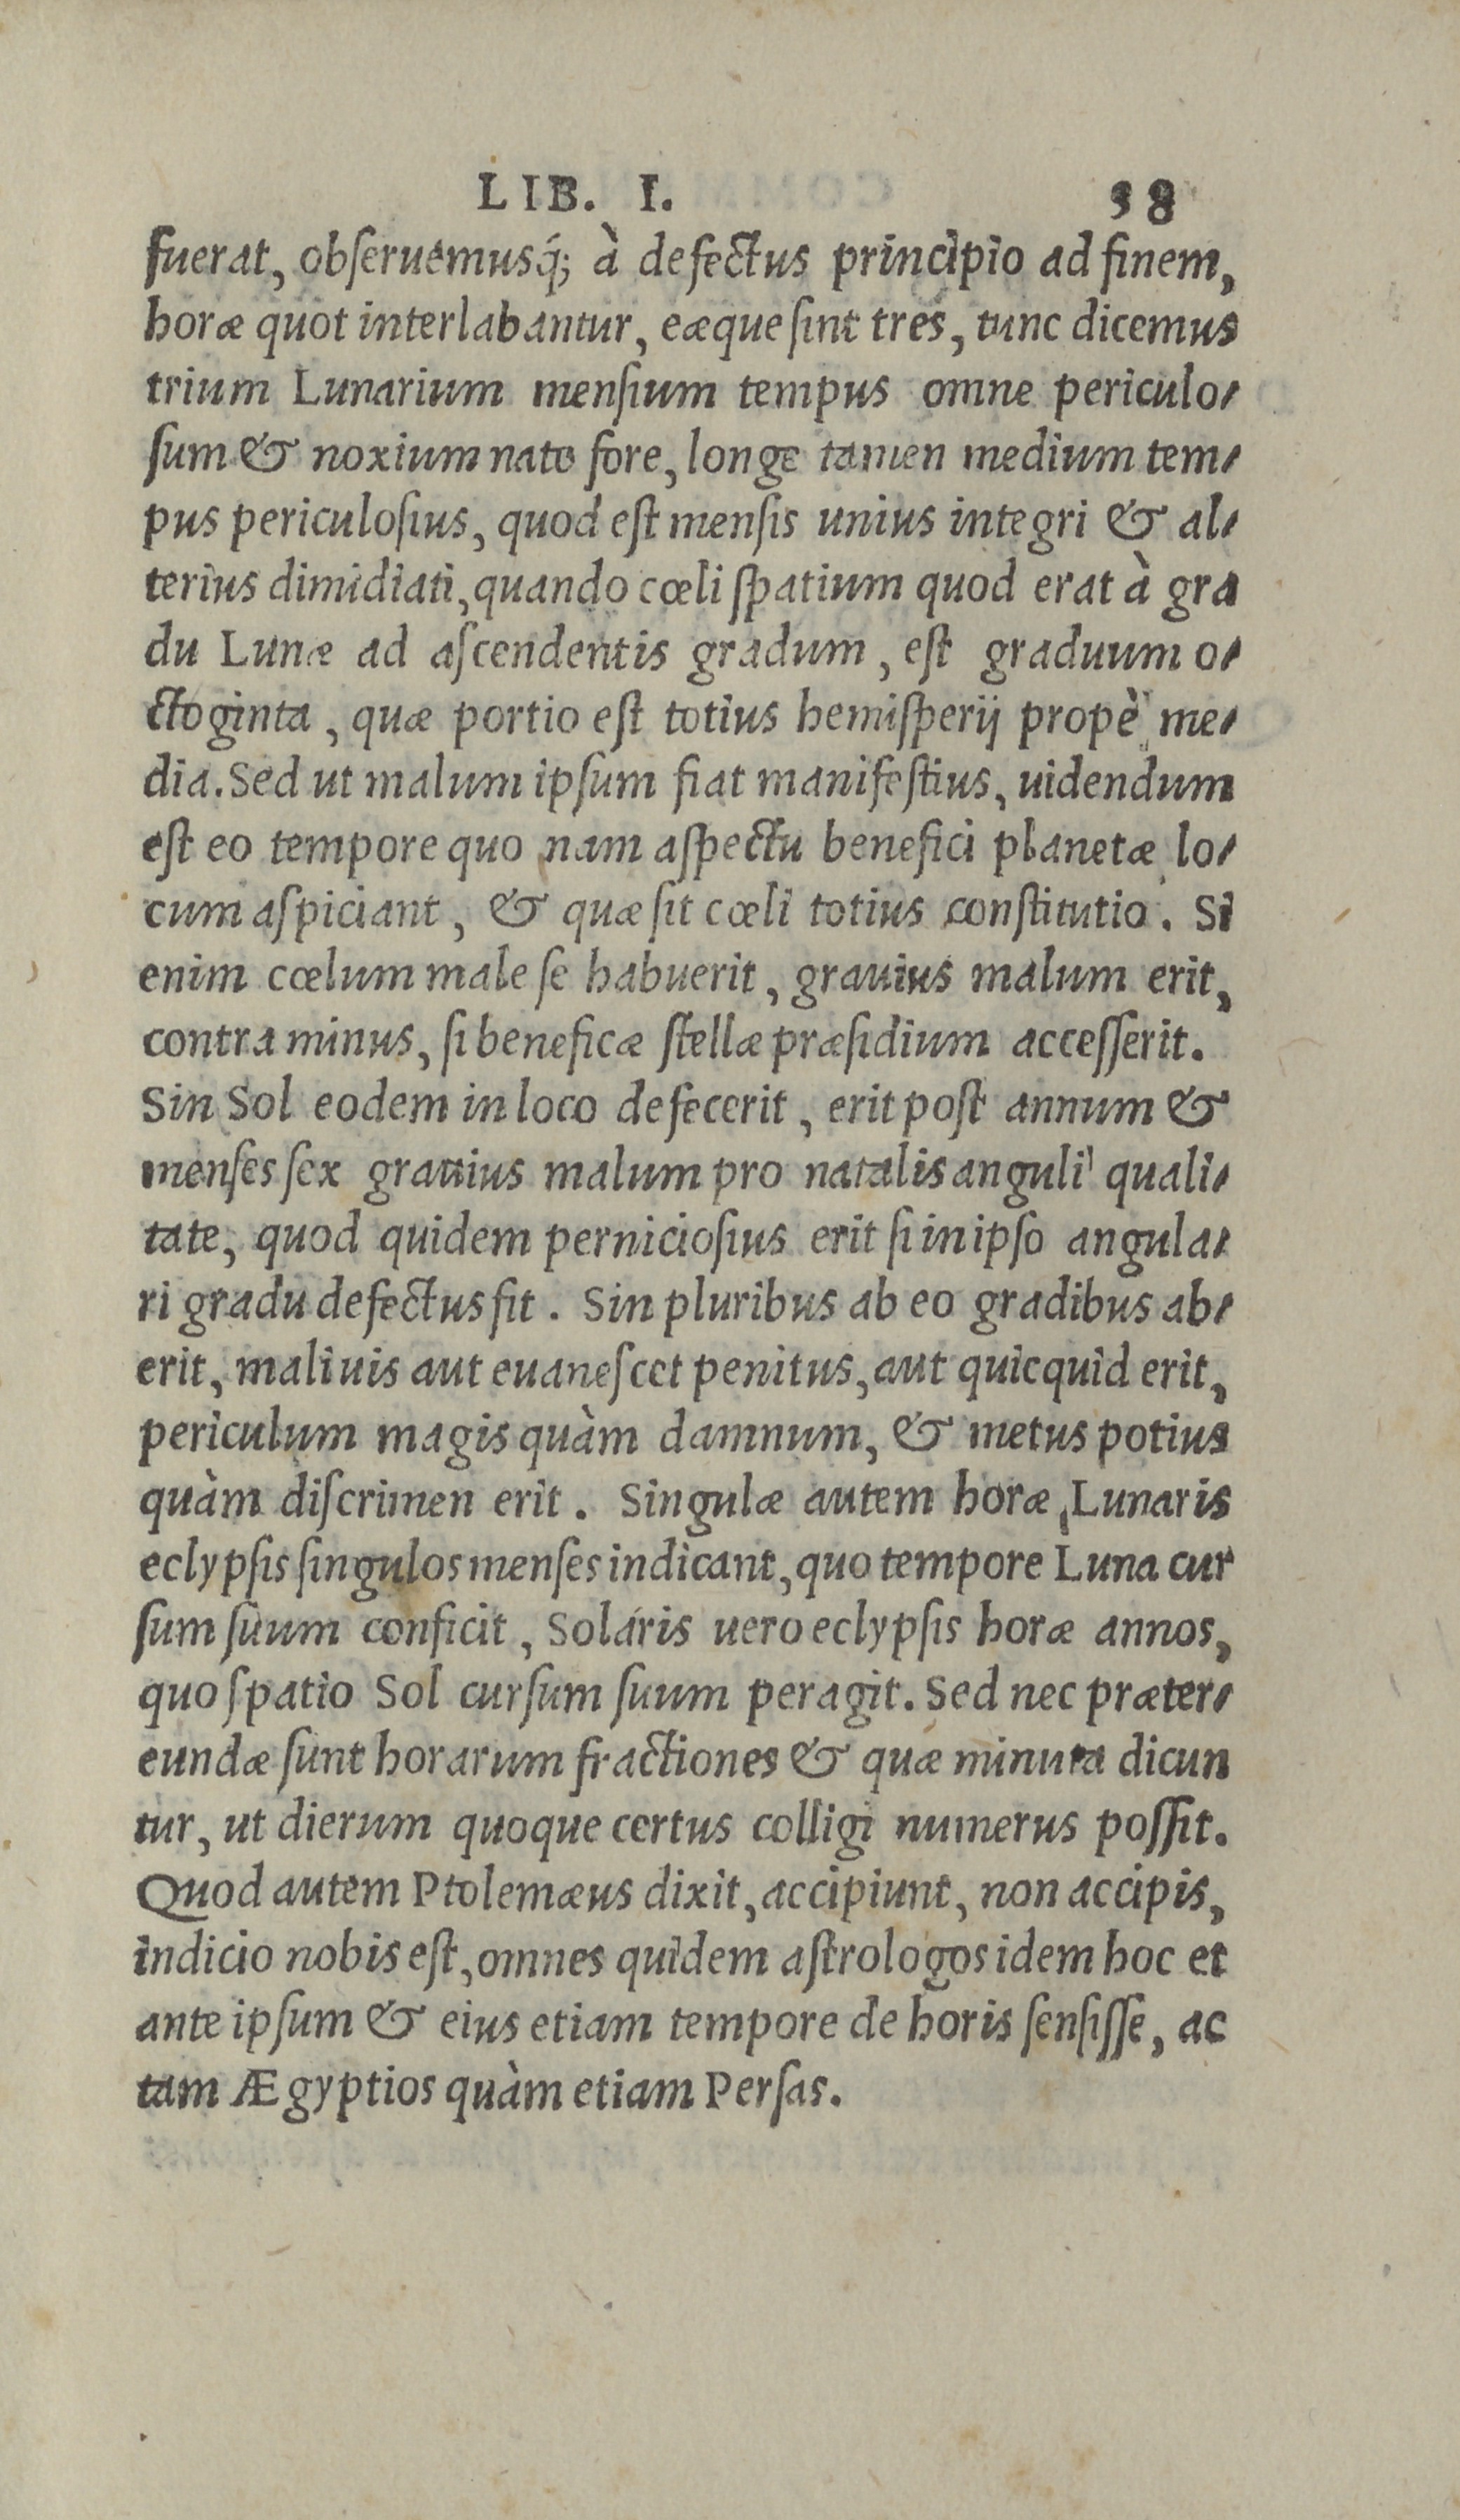 LIB. I. 38
fuerat, obſeruemusq́; à defectus principio ad finem,
horæ quot interlabantur, eæque ſint tres, tunc dicemus
trium Lunarium menſium tempus omne periculo-
ſum & noxium nato fore, longe tamen medium tem-
pus periculoſius, quod eſt menſis unius integri & al-
terius dimidiati, quando cœli ſpatium quod erat à gra
du Lunæ ad aſcendentis gradum, eſt graduum o-
ctoginta, quæ portio eſt totius hemiſperij propè me-
dia. Sed ut malum ipſum fiat manifeſtius, uidendum
eſt eo tempore quo nam aſpectu benefici planetæ lo-
cum aſpiciant, & quæ ſit cœli totius conſtitutio. Si
enim cœlum male ſe habuerit, grauius malum erit,
contra minus, ſi beneficæ ſtellæ præſidium acceſſerit.
Sin Sol eodem in loco defecerit, erit poſt annum &
menſes ſex grauius malum pro natalis anguli quali-
tate, quod quidem pernicioſius erit ſi in ipſo angula-
ri gradu defectus fit. Sin pluribus ab eo gradibus ab-
erit, mali uis aut euaneſcet penitus, aut quicquid erit,
periculum magis quàm damnum, & metus potius
quàm diſcrimen erit. Singulæ autem horæ Lunaris
eclypſis ſingulos menſes indicant, quo tempore Luna cur
ſum ſuum conficit, Solaris uero eclypſis horæ annos,
quo ſpatio Sol curſum ſuum peragit. Sed nec præter-
eundæ ſunt horarum fractiones & quæ minuta dicun
tur, ut dierum quoque certus colligi numerus poſſit.
Quod autem Ptolemæus dixit, accipiunt, non accipis,
indicio nobis eſt, omnes quidem aſtrologos idem hoc et
ante ipſum & eius etiam tempore de horis ſenſiſſe, ac
tam Ægyptios quàm etiam Perſas.